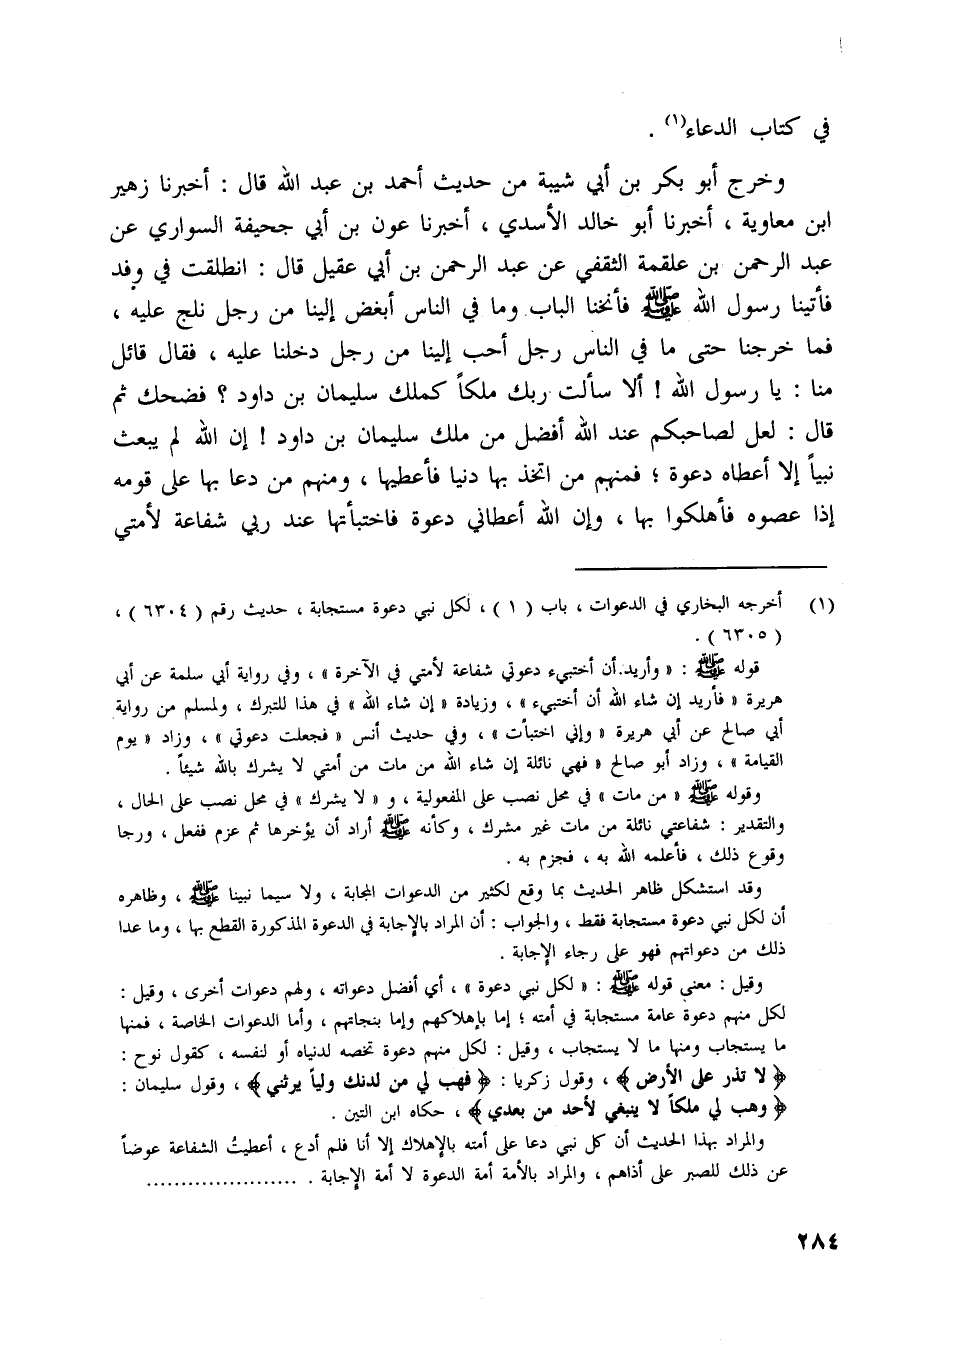 في كتاب الدعاء(١) .
وخرج أبو بكر بن أبي شيبة من حديث أحمد بن عبد الله قال : أخبرنا زهير
ابن معاوية ، أخبرنا أبو خالد الأسدي ، أخبرنا عون بن أبي جحيفة السواري عن
عبد الرحمن بن علقمة الثقفي عن عبد الرحمن بن أبي عقيل قال : انطلقت في وفد
فأتينا رسول الله ﷺ فأنخنا الباب وما في الناس أبغض إلينا من رجل نلج عليه ،
فما خرجنا حتى ما في الناس رجل أحب إلينا من رجل دخلنا عليه ، فقال قائل
منا : يا رسول الله ! ألا سألت ربك ملكاً كملك سليمان بن داود ؟ فضحك ثم
قال : لعل لصاحبكم عند الله أفضل من ملك سليمان بن داود ! إن الله لم يبعث
نبياً إلا أعطاه دعوة ؛ فمنهم من اتخذ بها دنيا فأعطيها ، ومنهم من دعا بها على قومه
إذا عصوه فأهلكوا بها ، وإن الله أعطاني دعوة فاختبأتها عند ربي شفاعة لأمتي
(١) أخرجه البخاري في الدعوات ، باب ( ١ ) ، لكل نبي دعوة مستجابة ، حديث رقم ( ٦٣٠٤ ) ،
( ٦٣٠٥ ) .
قوله ﷺ : « وأريد أن أختبيء دعوتي شفاعة لأمتي في الآخرة » ، وفي رواية أبي سلمة عن أبي
هريرة « فأريد إن شاء الله أن أختبيء » ، وزيادة « إن شاء الله » في هذا للتبرك ، ولمسلم من رواية
أبي صالح عن أبي هريرة « وإني اختبأت » ، وفي حديث أنس « فجعلت دعوتي » ، وزاد « يوم
القيامة » ، وزاد أبو صالح « فهي نائلة إن شاء الله من مات من أمتي لا يشرك بالله شيئاً .
وقوله ﷺ « من مات » في محل نصب على المفعولية ، و « لا يشرك » في محل نصب على الحال ،
والتقدير : شفاعتي نائلة من مات غير مشرك ، وكأنه ﷺ أراد أن يؤخرها ثم عزم ففعل ، ورجا
وقوع ذلك ، فأعلمه الله به ، فجزم به .
وقد استشكل ظاهر الحديث بما وقع لكثير من الدعوات المجابة ، ولا سيما نبينا ﷺ ، وظاهره
أن لكل نبي دعوة مستجابة فقط ، والجواب : أن المراد بالإجابة في الدعوة المذكورة القطع بها ، وما عدا
ذلك من دعواتهم فهو على رجاء الإجابة .
وقيل : معنى قوله ﷺ : « لكل نبي دعوة » ، أي أفضل دعواته ، ولهم دعوات أخرى ، وقيل :
لكل منهم دعوة عامة مستجابة في أمته ؛ إما بإهلاكهم وإما بنجاتهم ، وأما الدعوات الخاصة ، فمنها
ما يستجاب ومنها ما لا يستجاب ، وقيل : لكل منهم دعوة تخصه لدنياه أو لنفسه ، كقول نوح :
﴿ لا تذر على الأرض ﴾ ، وقول زكريا : ﴿ فهب لي من لدنك ولياً يرثني ﴾ ، وقول سليمان :
﴿ وهب لي ملكاً لا ينبغي لأحد من بعدي ﴾ ، حكاه ابن التين .
والمراد بهذا الحديث أن كل نبي دعا على أمته بالإهلاك إلا أنا فلم أدع ، أعطيتُ الشفاعة عوضاً
عن ذلك للصبر على أذاهم ، والمراد بالأمة أمة الدعوة لا أمة الإجابة . ......................
٢٨٤